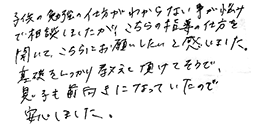 子供の勉強の仕方がわからない事がきっかけ
で相談しましたが、こちらの指導の仕方を
聞いて、こちらにお願いしたいと感じました。
基礎をしっかり教えて頂けそうで、
息子も前向きになっていたので
安心しました。